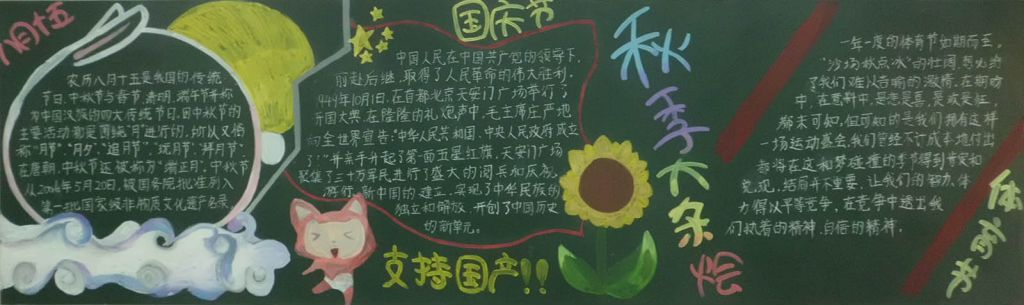 八月十五
农历八月十五是我国的传统
节日,中秋节与春节、清明、端午节并称
为中国汉族的四大传统节日。因中秋节的
主要活动都是围绕"月"进行的,所以又俗
称"月节"、"月夕"、"追月节"、"玩月节"、"拜月节"。
在唐朝,中秋节还被称为"端正月"。中秋节
从2006年5月20日,被国务院批准列入
第一批国家级非物质文化遗产名录。
国庆节
中国人民在中国共产党的领导下,
前赴后继,取得了人民革命的伟大胜利。
1949年10月1日,在首都北京天安门广场举行了
开国大典,在隆隆的礼炮声中,毛主席庄严地
向全世界宣告:"中华人民共和国、中央人民政府成立
了!"并亲手升起了第一面五星红旗。天安门广场
聚集了三十万军民进行了盛大的阅兵和庆祝
游行。新中国的建立,实现了中华民族的
独立和解放,开创了中国历史
的新单元。
支持国产!!
秋季大杂烩
一年一度的体育节如期而至。
"沙场秋点兵"的壮阔,
了我们难以言喻的激情。在期盼
中,在意料中,是悲是喜,是哀是狂,
都未可知,但可知的是我们拥有这样
一场运动盛会,我们曾经不计成本地付出
都将在这和梦碰撞的季节得到肯定和
兑现,结局并不重要,让我们的智力、体
力得以平等竞争,在竞争中透出我
们执着的精神、自信的精神。
体育节